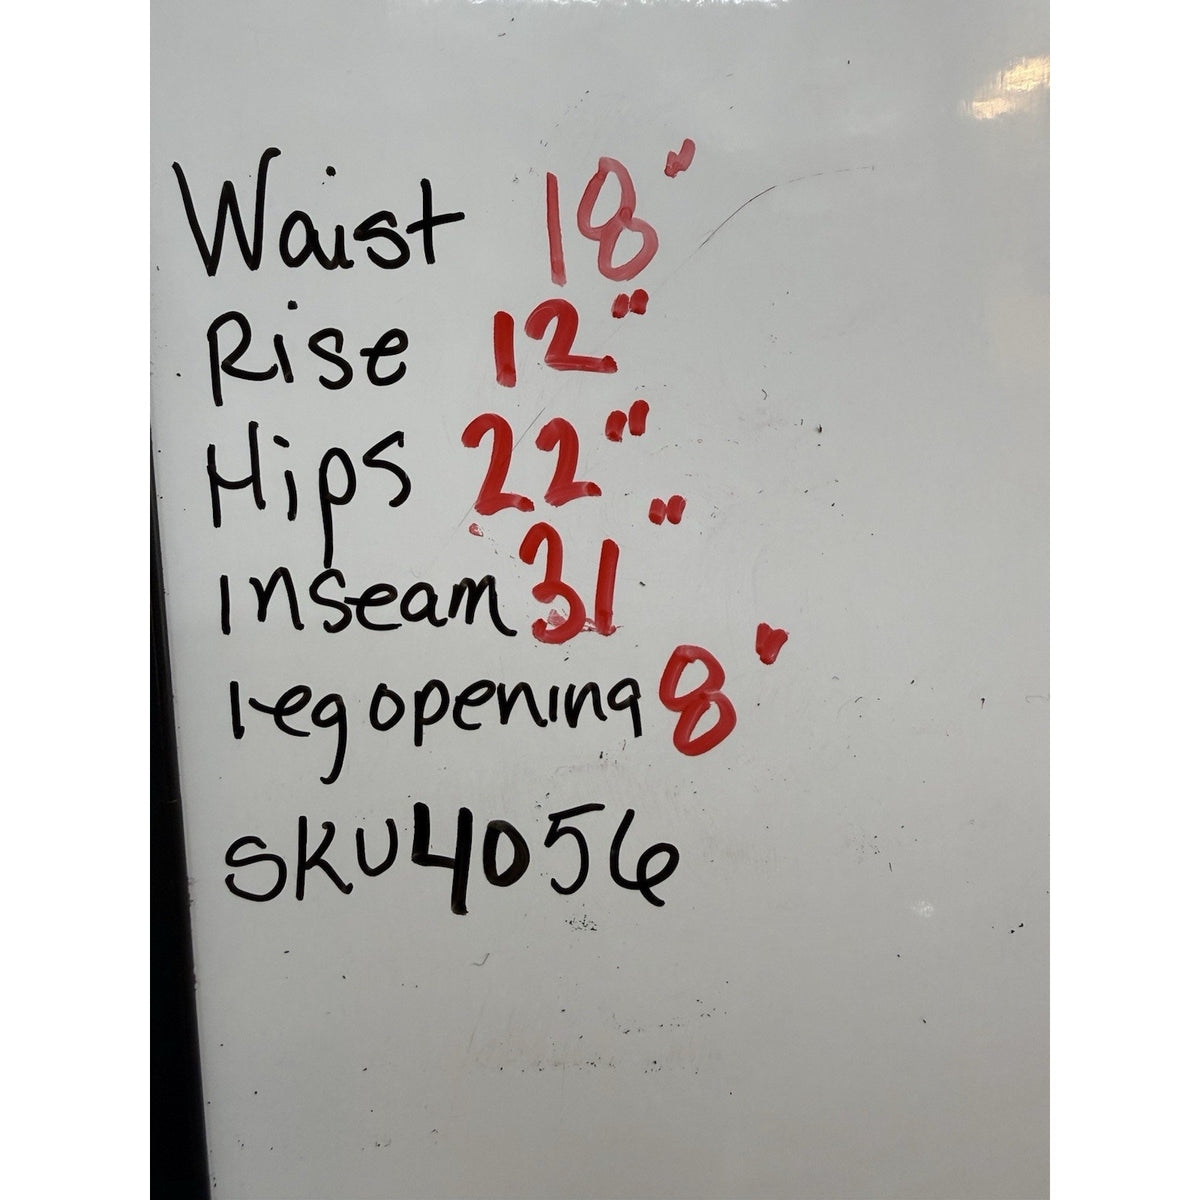 Waist 18"
Rise 12"
Hips 22"
inseam 31"
leg opening 8"
SKU 4056